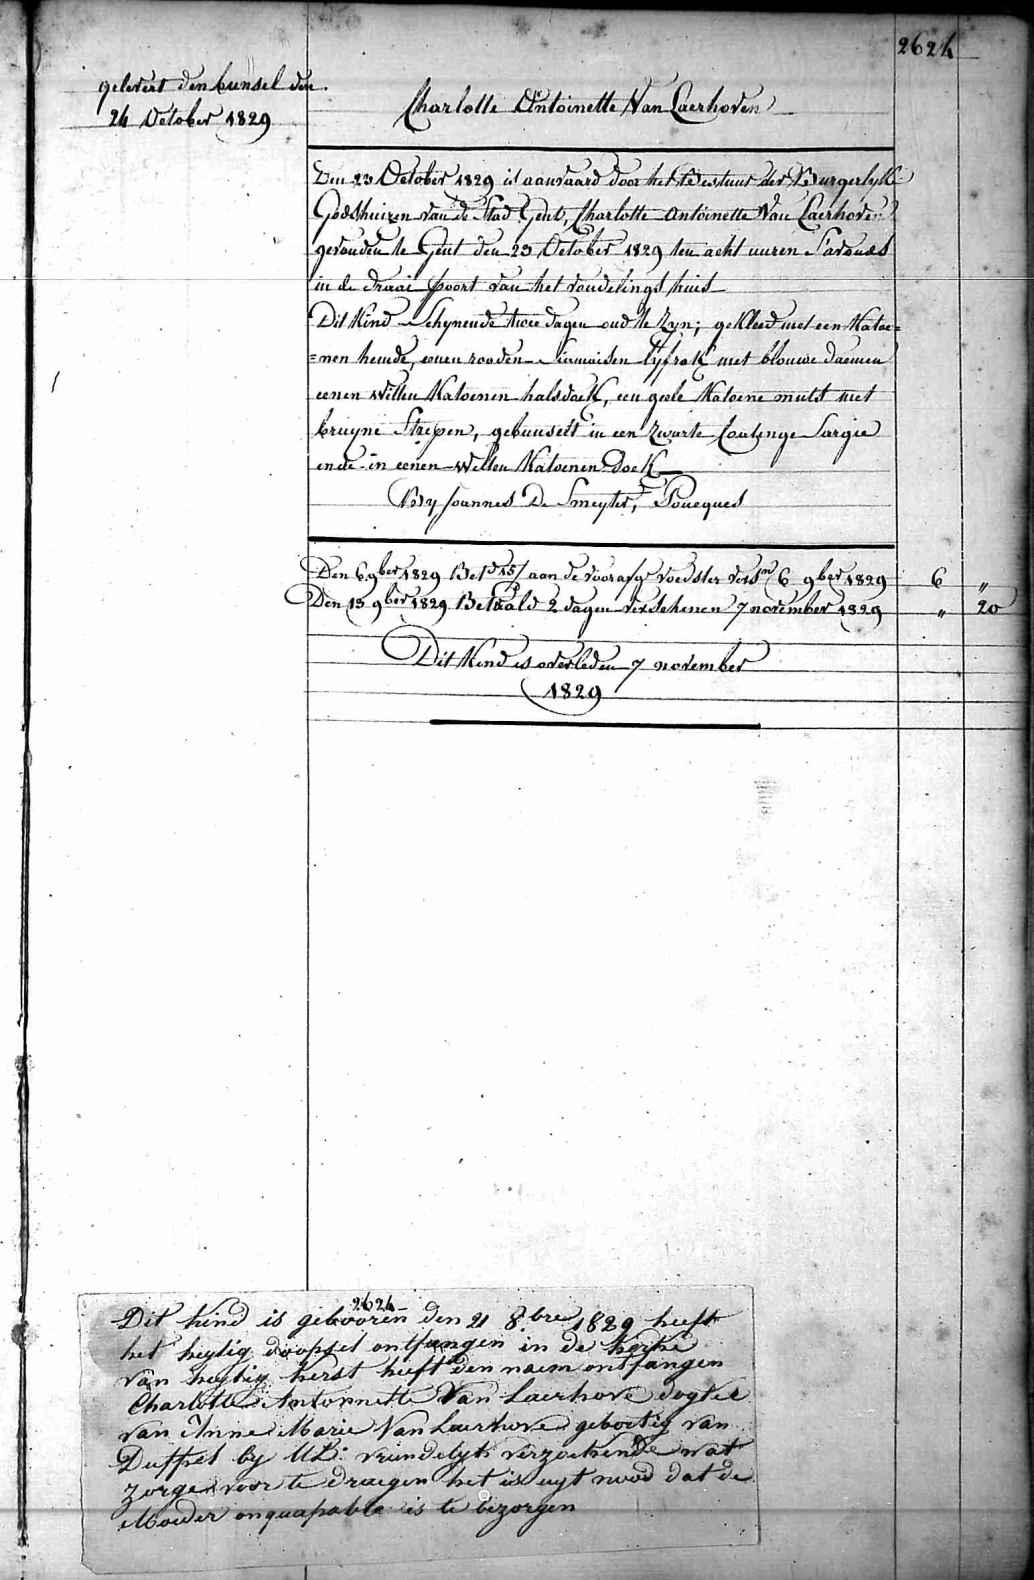 2624
gelevert den bunsel den
24 October 1829
Charlotte Antoinette Van Laerhoven
Den 23 October 1829 is aanvaard door het Bestuur der Burgerlyke
Godshuizen van de Stad Gent, Charlotte Antoinette Van Laerhoven
gevonden te Gent den 23 October 1829 ten acht uuren S'avonds
in de draai poort van het vondelings huis
Dit Kind Schynende twee dagen oud te zyn; gekleed met een Katoe=
=nen hemde, eenen rooden Siamoisen lyfrok met blouwe
eenen witten Katoenen halsdoek, een geele Katoene muts met
bruyne Strepen, gebunselt in een zwarte Sargie
ende in eenen witten Katoenen Doek
By Joannes De Smeyter, Poucques
Den 6 9ber 1829 Bet aan de voorafge voedster vers 6 9ber 1829 6 "
Den 13 9ber 1829 Betaald 2 dagen verschenen 7 november 1829 " 20
Dit Kind is overleden 7 november
1829
2624
Dit kind is gebooren den 21 8bre 1829 heeft
het heylig doopsel ontfangen in de kerke
van heylig kerst heeft den naem ontfangen
Charlotte Antonnette Van Laerhove dogter
van Anne Marie Van Laerhove geboetig van
Duffel by vrindelyk verzoekende wat
zorge voor te draegen het is uyt nood dat de
Moeder onquapable is te bezorgen